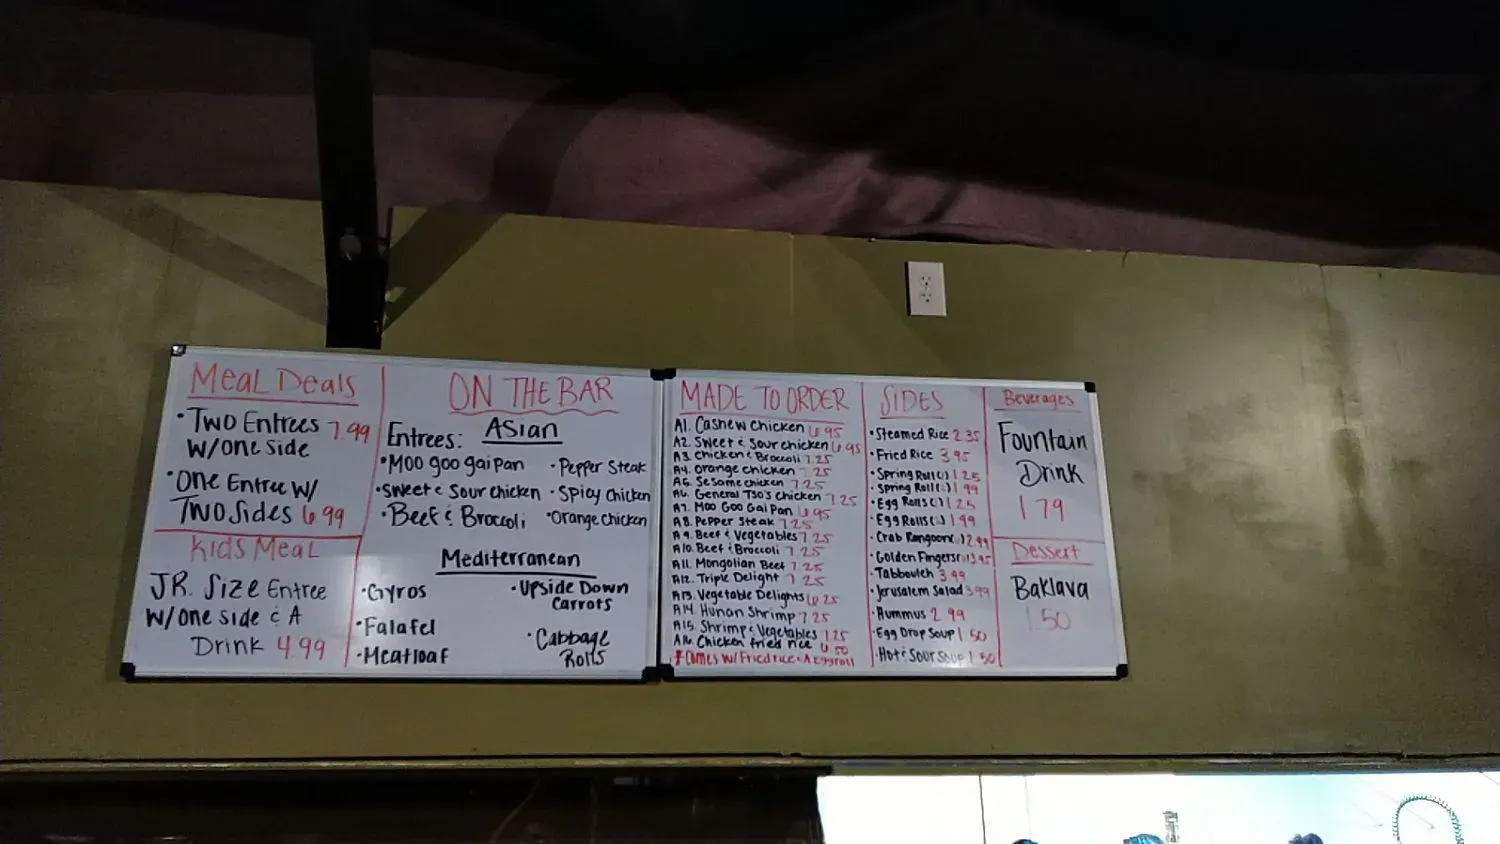 Meal Deals
• Two Entrees 7.99
w/one side
• One Entree w/
Two sides 6.99
Kids Meal
JR. Size Entree
w/one side & A
Drink 4.99
ON THE BAR
Entrees: Asian
• Moo goo gai pan
• Pepper Steak
• Sweet & Sour chicken
• Spicy Chicken
• Beef & Broccoli
• Orange Chicken
Mediterranean
• Gyros
• Upside Down
Carrots
• Falafel
• Cabbage
Rolls
• Meatloaf
MADE TO ORDER
A1. Cashew chicken 6 95
A2. Sweet & Sour chicken 6 95
A3. Chicken & Broccoli 7.25
A4. Orange chicken 7 25
A5. Sesame chicken 7.25
A6. General Tso's chicken 7 25
A7. Moo Goo Gai Pan 6 95
A8. Pepper Steak 7.25
A9. Beef & Vegetables 7 25
A10. Beef & Broccoli 7 25
A11. Mongolian Beef 7 25
A12. Triple Delight 7 25
A13. Vegetable Delights 6 25
A14. Hunan Shrimp 7 25
A15. Shrimp & Vegetables 7 25
A16. Chicken fried rice 6 50
* Comes w/ Fried rice & A Eggroll
SIDES
• Steamed Rice 2 35
• Fried Rice 3 95
• Spring Roll(1) 1 25
• Spring Roll( ) 1 99
• Egg Rolls(1) 1 25
• Egg Rolls( ) 1 99
• Crab Rangoon 2 99
• Golden Fingers 3 95
• Tabbouleh 3 99
• Jerusalem Salad 3 99
• Hummus 2 99
• Egg Drop Soup 1 50
• Hot & Sour Soup 1 50
Beverages
Fountain
Drink
1 79
Dessert
Baklava
1 50